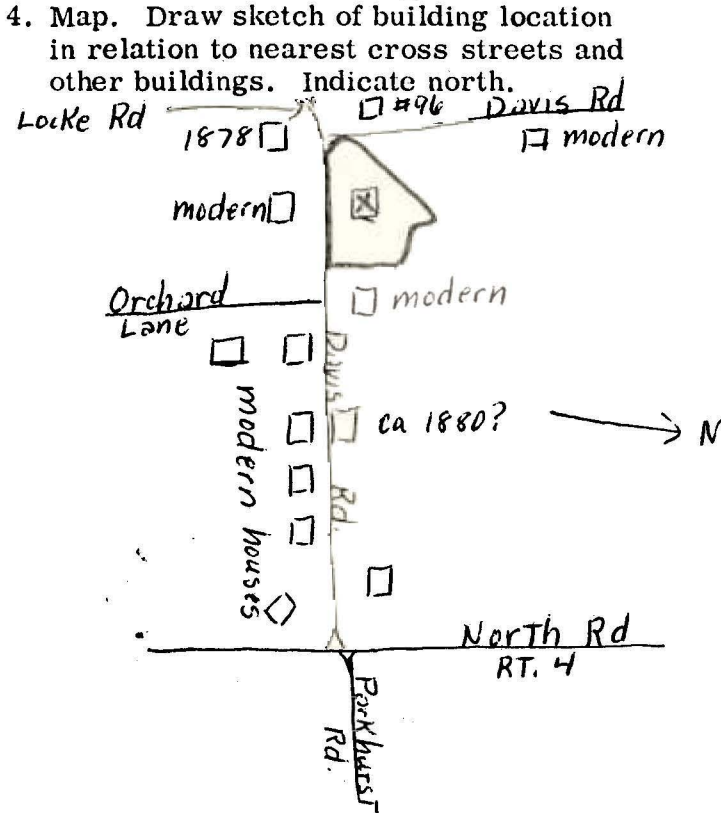 4. Map. Draw sketch of building location
in relation to nearest cross streets and
other buildings. Indicate north.
Locke Rd
#96
Davis Rd
1878
modern
modern
X
Orchard
Lane
modern
Davis Rd.
modern houses
ca 1880?
N
North Rd
RT. 4
Parkhurst
Rd.